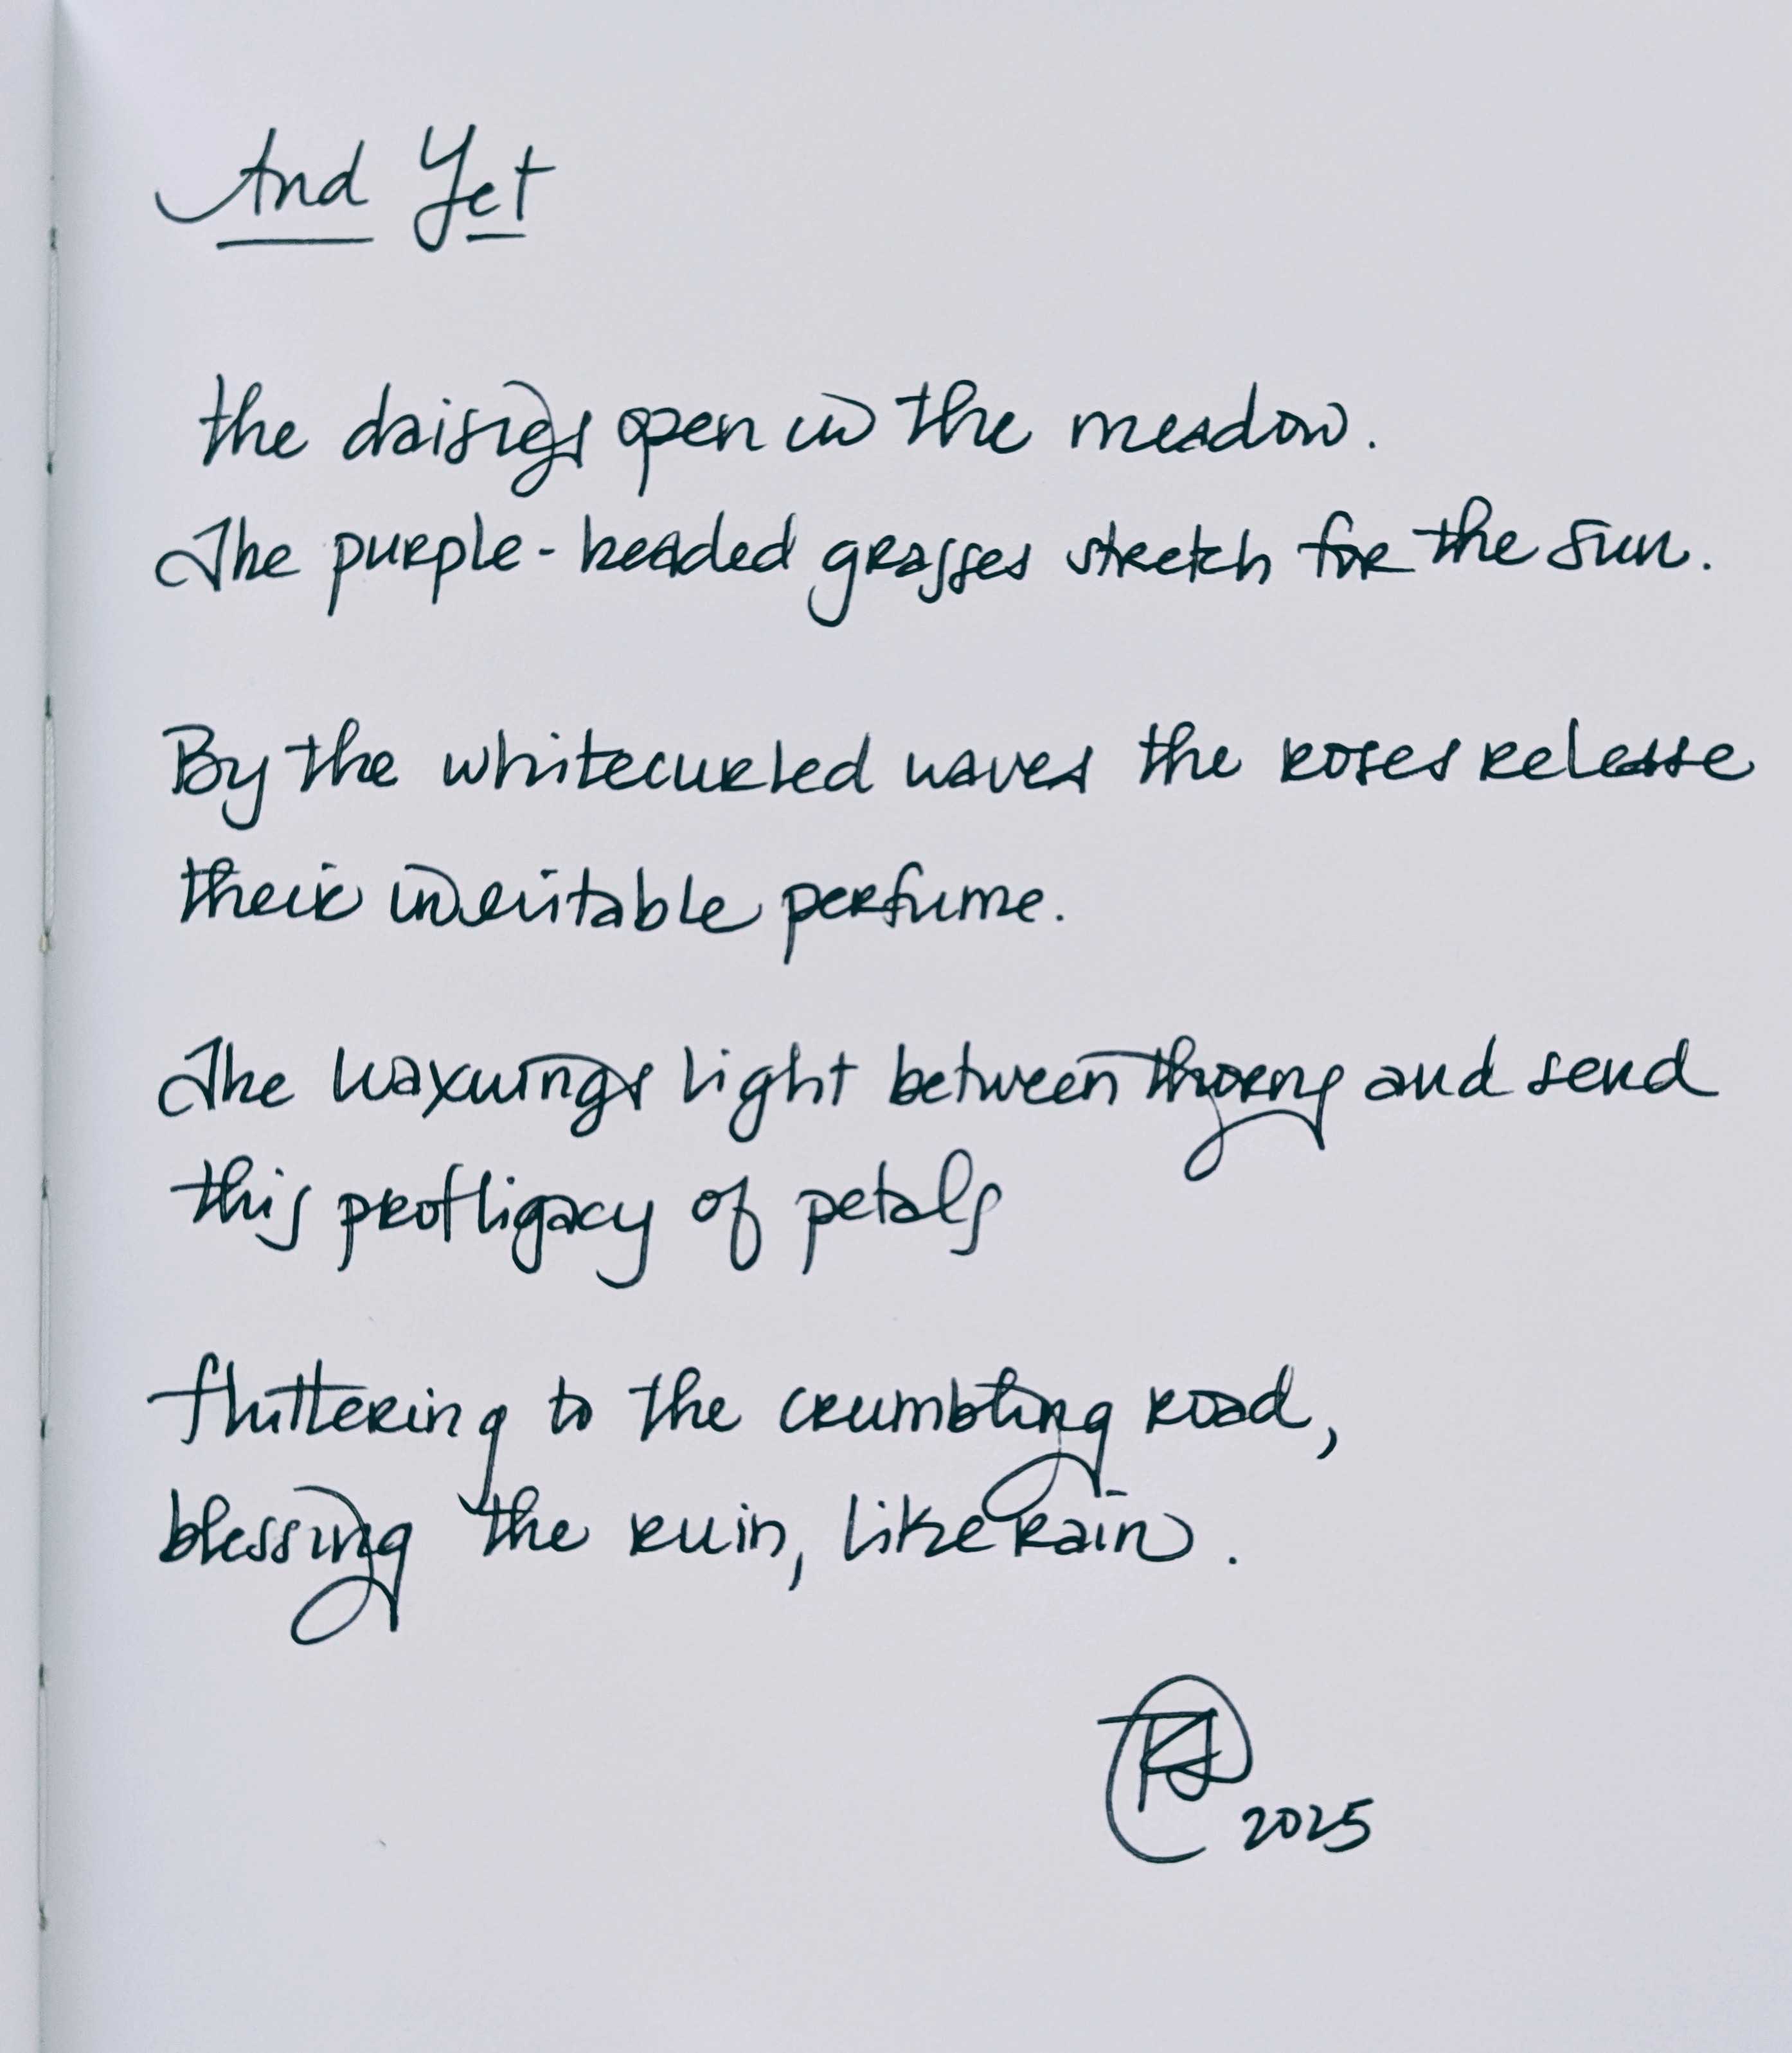 And Yet
the daisies open in the meadow.
The purple-headed grasses stretch for the sun.
By the whitecurled waves the roses release
their inevitable perfume.
The waxwings light between thorns and send
this profligacy of petals
fluttering to the crumbling road,
blessing the ruin, like rain.
2025